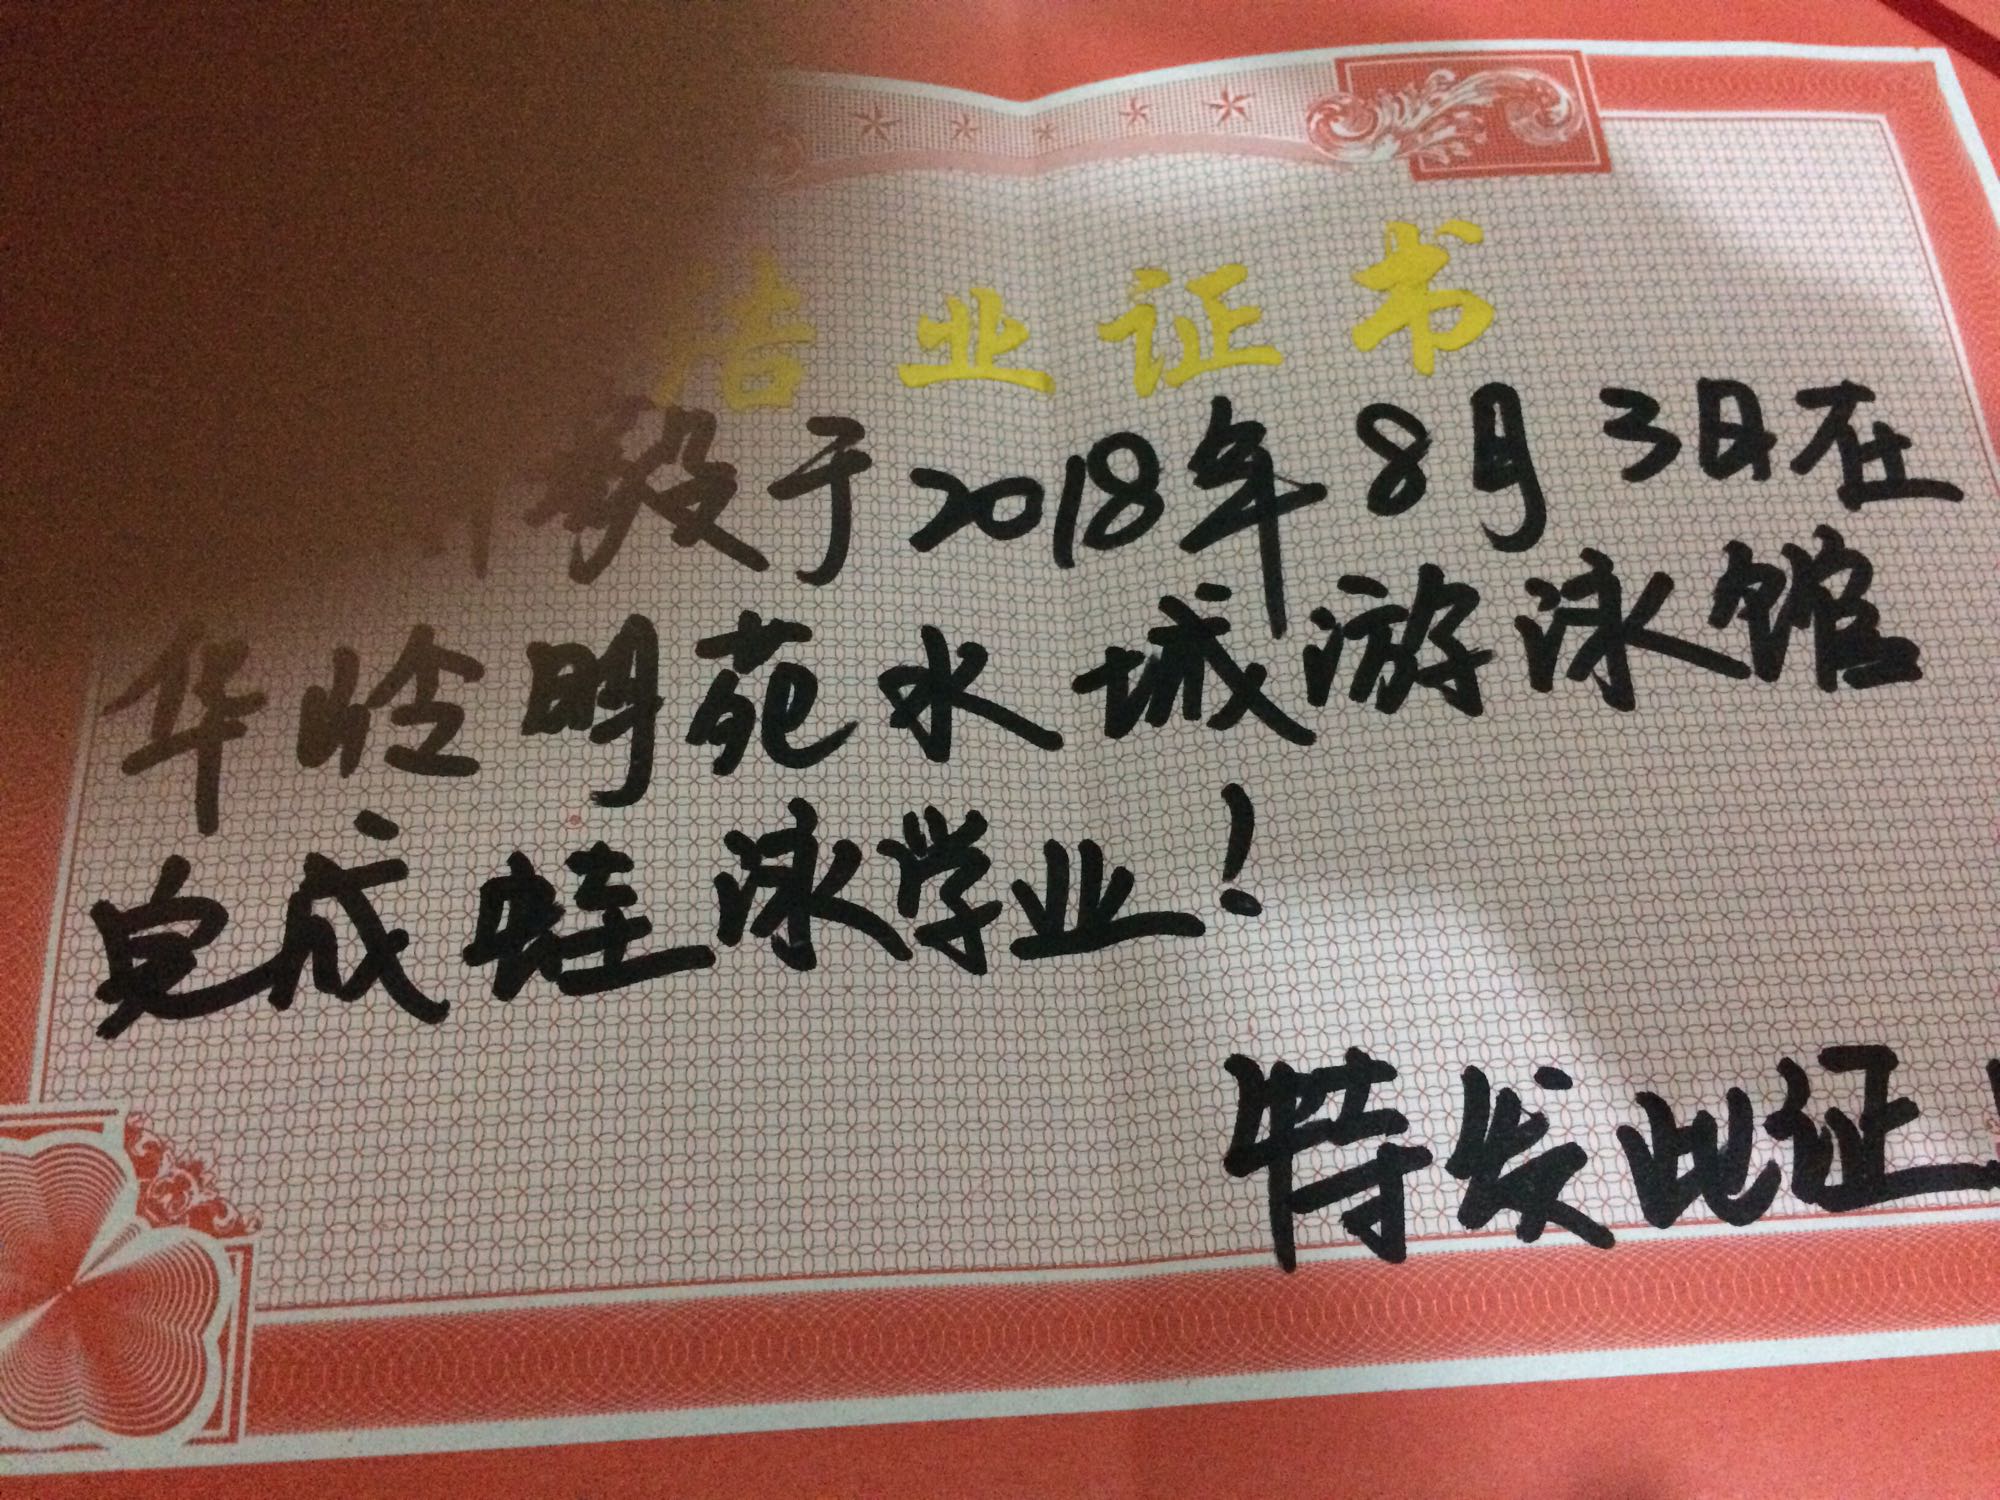 结业证书
毅于2018年8月3日在
华岭明苑水城游泳馆
完成蛙泳学业！
特发此证！